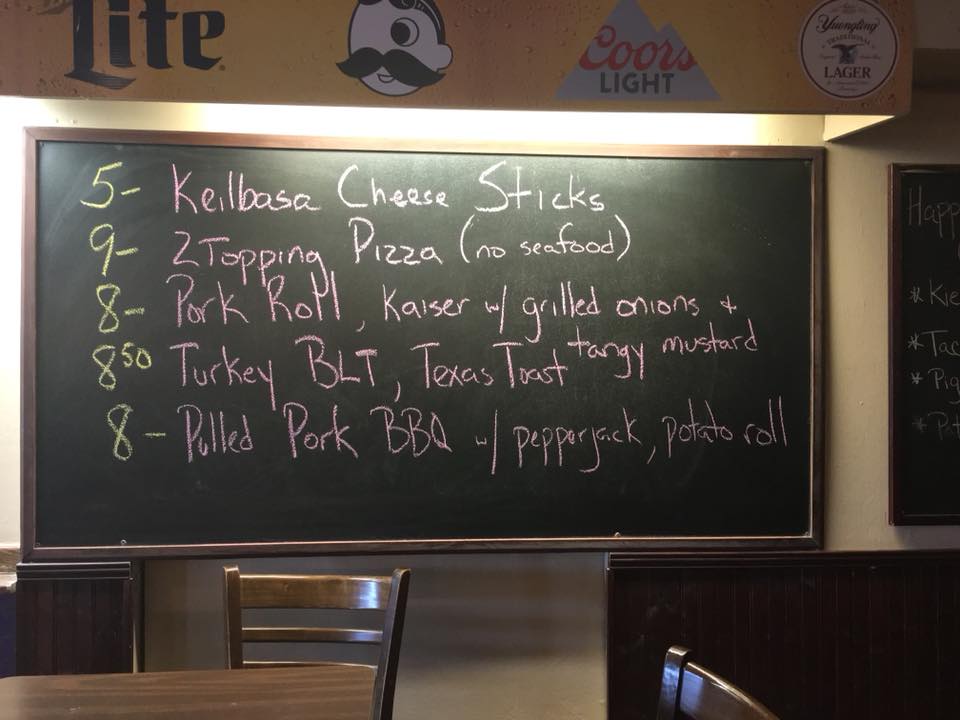 Lite
Coors
LIGHT
Yuengling
TRADITIONAL
LAGER
5- Keilbasa Cheese Sticks
9- 2 Topping Pizza (no seafood)
8- Pork Roll, Kaiser w/ grilled onions +
tangy mustard
8 50 Turkey BLT, Texas Toast
8- Pulled Pork BBQ w/ pepperjack, potato roll
Happ
* Kie
* Tac
* Pig
* Pot